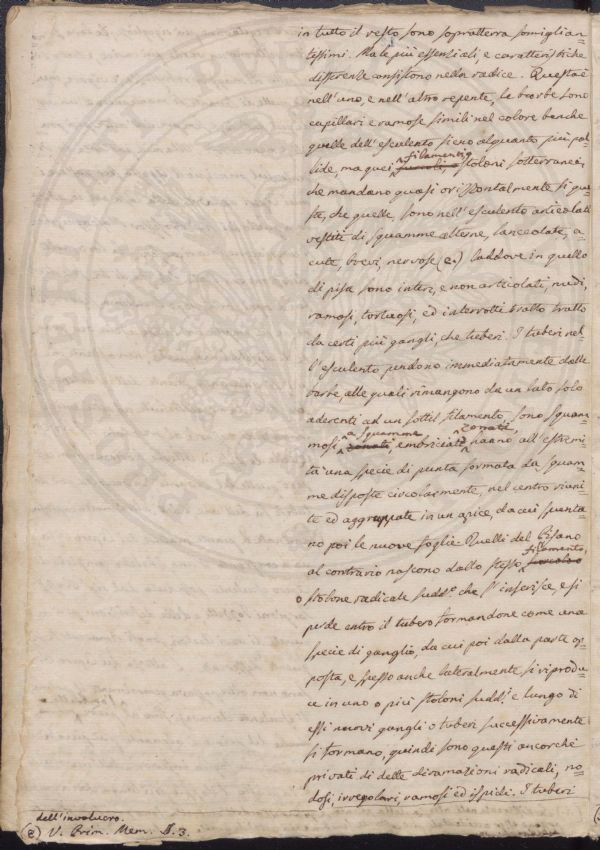 in tutto il resto sono sopratterra somiglian=
tissimi. Ma le più essenziali, e caratteristiche
differenze consistono nella radice. Questa è
nell'uno, e nell'altro repente, le barbe sono
capillari e ramose simili nel colore benche
quelle dell'esculento sieno alquanto più pal=
filamenti o
lide, ma quei stoloni sotterranei,
che mandano quasi orizzontalmente sì que=
ste, che quelle, sono nell'esculento articolati
vestiti di squamme alterne, lanceolate, a=
cute, brevi, nervose (e.) laddove in quello
di pisa sono interi, e non articolati, nudi,
ramosi, tortuosi, ed interrotti tratto tratto
da certi più gangli, che tuberi. I tuberi nel=
l'esculento pendono immediatamente dalle
barbe, alle quali rimangono da un lato solo
aderenti ad un sottil filamento, sono squam=
a squamme zonati,
mosi, zonati, embriciate hanno all'estremi=
tà una specie di punta formata da squam=
me disposte circolarmente, nel centro riuni=
te ed aggruppate in un apice, da cui spunta=
no poi le nuove foglie. Quelli del Pisano
filamento,
al contrario nascono dallo stesso
o stolone radicale sudd.o che s'inserisce, e si
perde entro il tubero formandone come una
specie di ganglio, da cui poi dalla parte op=
posta, e spesso anche lateralmente, si riprodu=
ce in uno o più stoloni sudd.i e lungo di
essi nuovi gangli o tuberi successivamente
si formano, quindi sono questi ancorchè
privati di dette diramazioni radicali, no=
dosi, irregolari, ramosi ed ispidi. I tuberi
dell'involucro.
(e) V. Prim. Mem. §. 3.